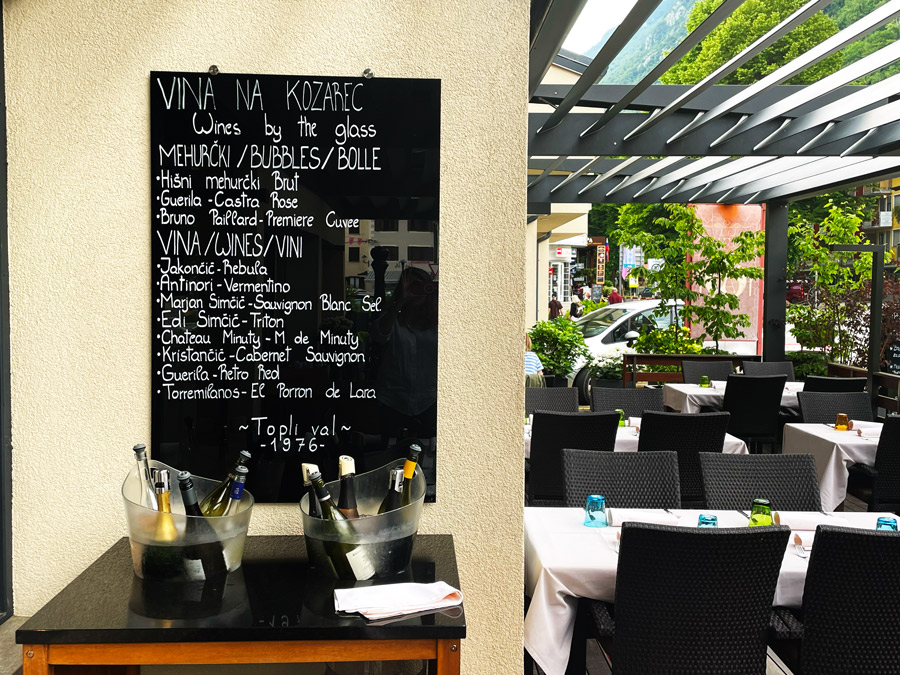 VINA NA KOZAREC
Wines by the glass
MEHURČKI/BUBBLES/BOLLE
•Hišni mehurčki Brut
•Guerila-Castra Rose
•Bruno Paillard-Premiere Cuvee
VINA/WINES/VINI
•Jakončič-Rebula
•Antinori-Vermentino
•Marjan Simčič-Sauvignon Blanc Sel.
•Edi Simčič-Triton
•Chateau Minuty-M de Minuty
•Kristančič-Cabernet Sauvignon
•Guerila-Retro Red
•Torremilanos-El Porron de Lara
~Topli val~
-1976-